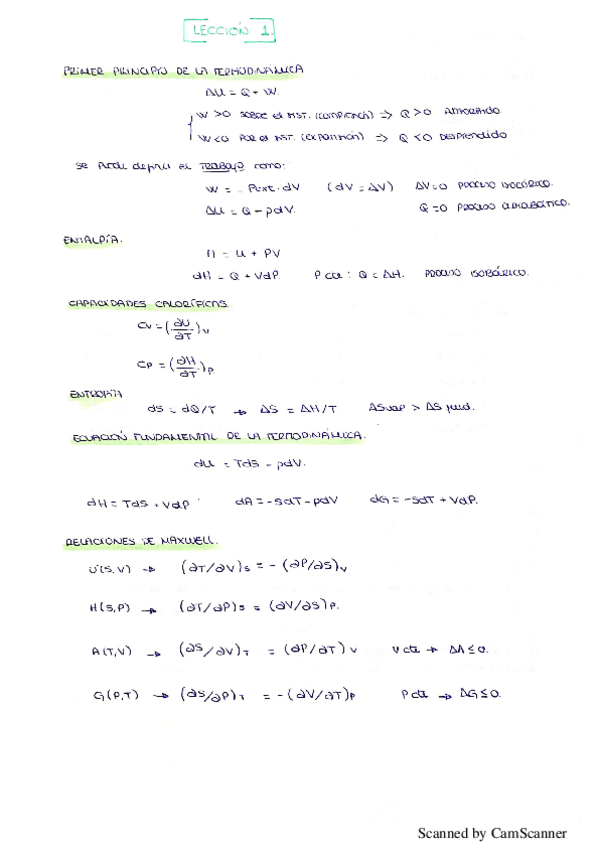 LECCIÓN 1.
PRIMER PRINCIPIO DE LA TERMODINÁMICA
ΔU = Q + W.
W > 0 SOBRE el SIST. (COMPRENSIÓN) => Q > 0 ABSORBIDO.
W < 0 POR el SIST. (EXPANSIÓN) => Q < 0 DESPRENDIDO
Se puede definir el TRABAJO como:
W = - Pext · dV (dV = ΔV) ΔV=0 PROCESO ISOCÓRICO.
ΔU = Q - pdV. Q = 0 PROCESO ADIABÁTICO.
ENTALPÍA.
H = U + PV
dH = Q + VdP. P cte : Q = ΔH. PROCESO ISOBÁRICO.
CAPACIDADES CALORÍFICAS.
Cv = (∂U/∂T)v
Cp = (∂H/∂T)p
ENTROPÍA
dS = dQ/T → ΔS = ΔH/T ΔSvap > ΔS fus.
ECUACIÓN FUNDAMENTAL DE LA TERMODINÁMICA.
dU = TdS - pdV.
dH = TdS + VdP dA = -SdT - pdV dG = -SdT + VdP.
RELACIONES DE MAXWELL.
U(S,V) → (∂T/∂V)s = - (∂P/∂S)v
H(S,P) → (∂T/∂P)s = (∂V/∂S)p.
A(T,V) → (∂S/∂V)T = (∂P/∂T)v V cte → ΔA ≤ 0.
G(P,T) → (∂S/∂P)T = - (∂V/∂T)p P cte → ΔG ≤ 0.
Scanned by CamScanner